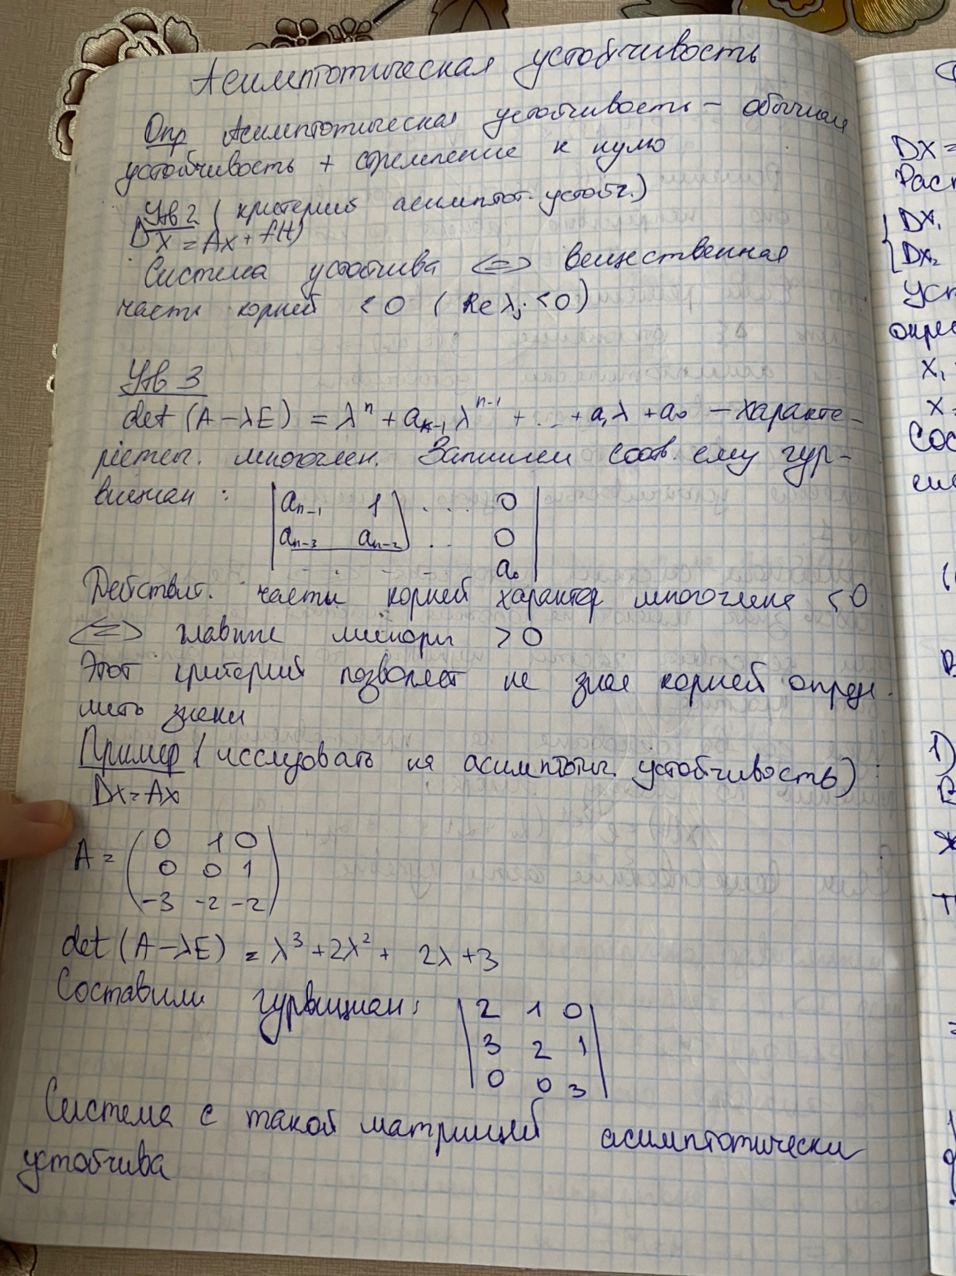 Асимптотическая устойчивость
Опр Асимптотическая устойчивость – обычная
устойчивость + стремление к нулю
Утв 2 (критерий асимптот. устойч.)
DX = AX + f(t)
Система устойчива <=> вещественная
части корней < 0 ( Re λj < 0 )
Утв 3
det (A – λE) = λⁿ + aₙ₋₁ λⁿ⁻¹ + ... + a₁λ + a₀ – характе-
ристич. многочлен. Запишем соотв. ему гур-
вициан :
aₙ₋₁ 1 ... 0
aₙ₋₃ aₙ₋₂ .. 0
a₀
Действит. части корней характер многочлена < 0
<=> главные миноры > 0
Этот критерий позволяет не зная корней опреде
лить знаки
Пример (исследовать на асимптотич. устойчивость) :
DX = AX
A = ( 0 1 0
0 0 1
-3 -2 -2 )
det (A – λE) = λ³ + 2λ² + 2λ + 3
Составим гурвициан:
2 1 0
3 2 1
0 0 3
Система с такой матрицей асимптотически
устойчива
DX =
Раст
{ DX₁
DX₂
Уст
опре
X₁
X =
Сос
сис
1)